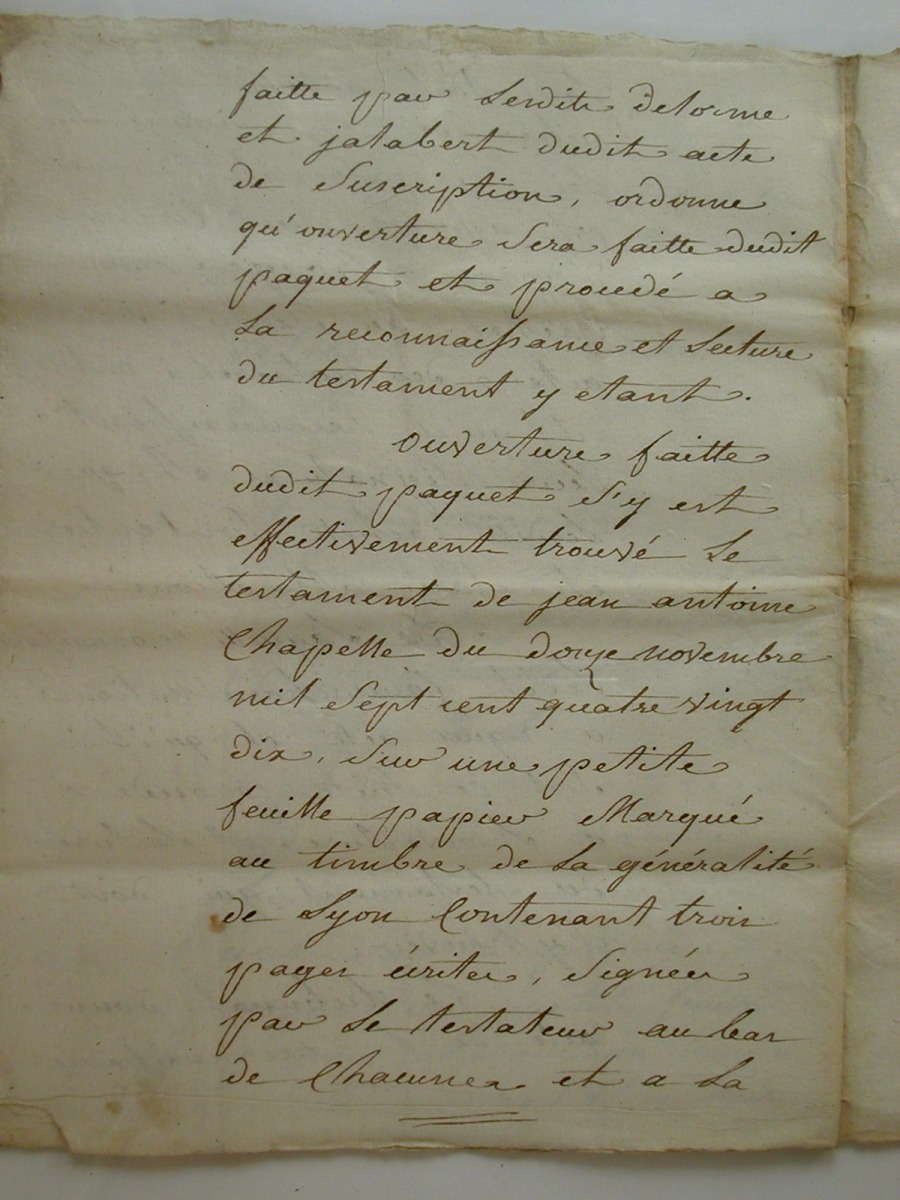 faitte par lesdits delorme
et jalabert dudit acte
de Suscription, ordonne
qu'ouverture Sera faitte dudit
paquet et procedé a
la reconnaissance et lecture
du testament y etant.
Ouverture faitte
dudit paquet s'y est
effectivement trouvé le
testament de jean antoine
Chapelle du douze novembre
mil Sept cent quatre vingt
dix, Sur une petite
feuille papier Marqué
au timbre de la généralité
de Lyon Contenant trois
pages écrites, Signées
par le testateur au bas
de Chacune et a la